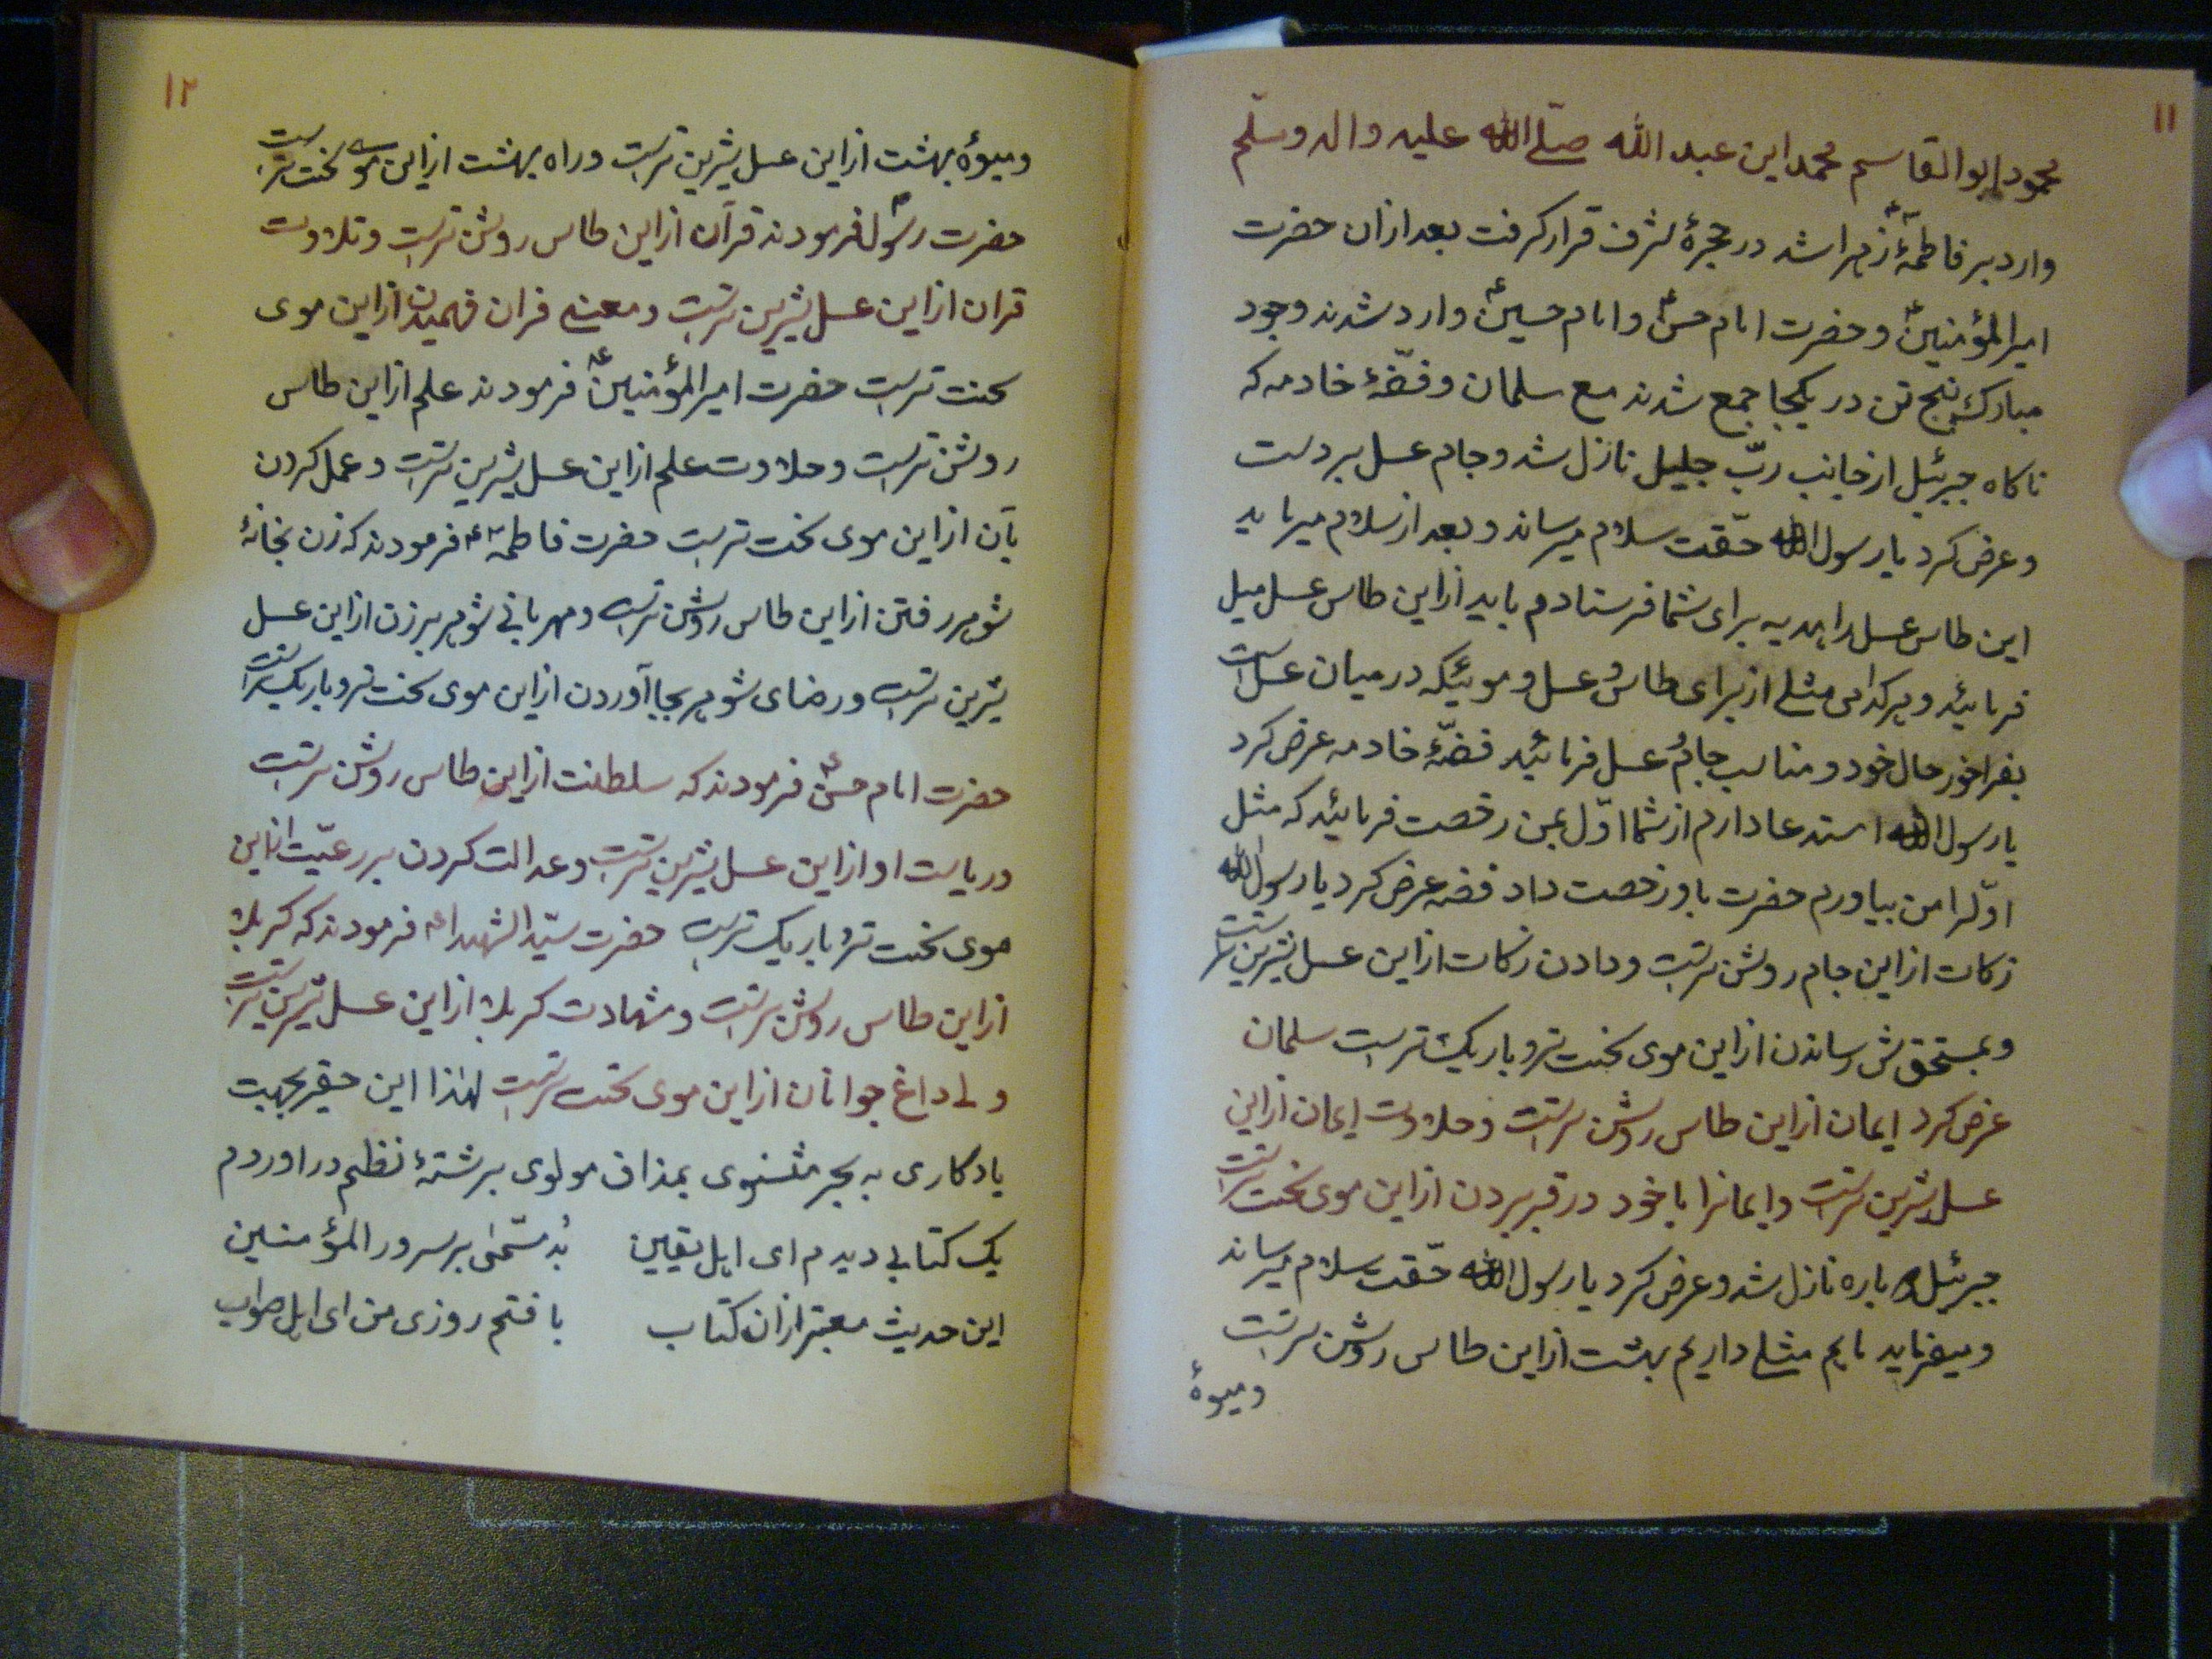 ۱۱
محمود ابوالقاسم محمد ابن عبد الله صلّی الله علیه و اله وسلّم
وارد بر فاطمهٔ زهرا شد در حجرهٔ شرف قرار گرفت بعد ازان حضرت
امیرالمؤمنین و حضرت امام حسن و امام حسین وارد شدند وجود
مبارک پنج تن در یکجا جمع شدند مع سلمان و فضّهٔ خادمه که
ناکاه جبرئیل از جانب ربّ جلیل نازل شد و جام عسل بر دست
و عرض کرد یا رسول الله حقّت سلام میرساند و بعد از سلام میفرماید
این طاس عسل را هدیه برای شما فرستادم باید از این طاس عسل میل
فرمائید و هر کدامی مثلی از برای طاس و عسل و موئیکه در میان عسل است
بفراخور حال خود و مناسب جام عسل فرمائید فضّهٔ خادمه عرض کرد
یا رسول الله استدعا دارم از شما اوّل بمن رخصت فرمائید که مثل
اوّلرا من بیاورم حضرت باو رخصت داد فضه عرض کرد یا رسول الله
زکات از این جام روشن تر است و دادن زکات از این عسل شیرین تر است
و بمستحقش رساندن از این موی سخت تر و باریک تر است سلمان
عرض کرد ایمان از این طاس روشن تر است و حلاوت ایمان از این
عسل شیرین تر است و ایمانرا با خود در قبر بردن از این موی سخت تر است
جبرئیل دوباره نازل شد و عرض کرد یا رسول الله حقّت سلام میرساند
و میفرماید ما هم مثلی داریم بهشت از این طاس روشن تر است
و میوهٔ
۱۲
و میوهٔ بهشت از این عسل شیرین تر است و راه بهشت از این موی سخت تر است
حضرت رسول فرمودند قرآن از این طاس روشن تر است و تلاوت
قران از این عسل شیرین تر است و معنی قران فهمیدن از این موی
سخت تر است حضرت امیرالمؤمنین فرمودند علم از این طاس
روشن تر است و حلاوت علم از این عسل شیرین تر است و عمل کردن
بآن از این موی سخت تر است حضرت فاطمه فرمودند که زن بخانهٔ
شوهر رفتن از این طاس روشن تر است و مهربانی شوهر بر زن از این عسل
شیرین تر است و رضای شوهر بجا آوردن از این موی سخت تر و باریک تر است
حضرت امام حسن فرمودند که سلطنت از این طاس روشن تر است
و ریاست او از این عسل شیرین تر است و عدالت کردن بر رعیّت از این
موی سخت تر و باریک تر است حضرت سیّد الشهدا فرمودند که کربلا
از این طاس روشن تر است و شهادت کربلا از این عسل شیرین تر است
ولی داغ جوانان از این موی سخت تر است لهذا این حقیر بجهت
یادکاری به بحر مثنوی بمذاق مولوی برشتهٔ نظم در اوردم
یک کتابی دیدم ای اهل یقین بُد مسمّی بر سرور المؤمنین
این حدیث معتبر ازان کتاب یافتم روزی من ای اهل صواب